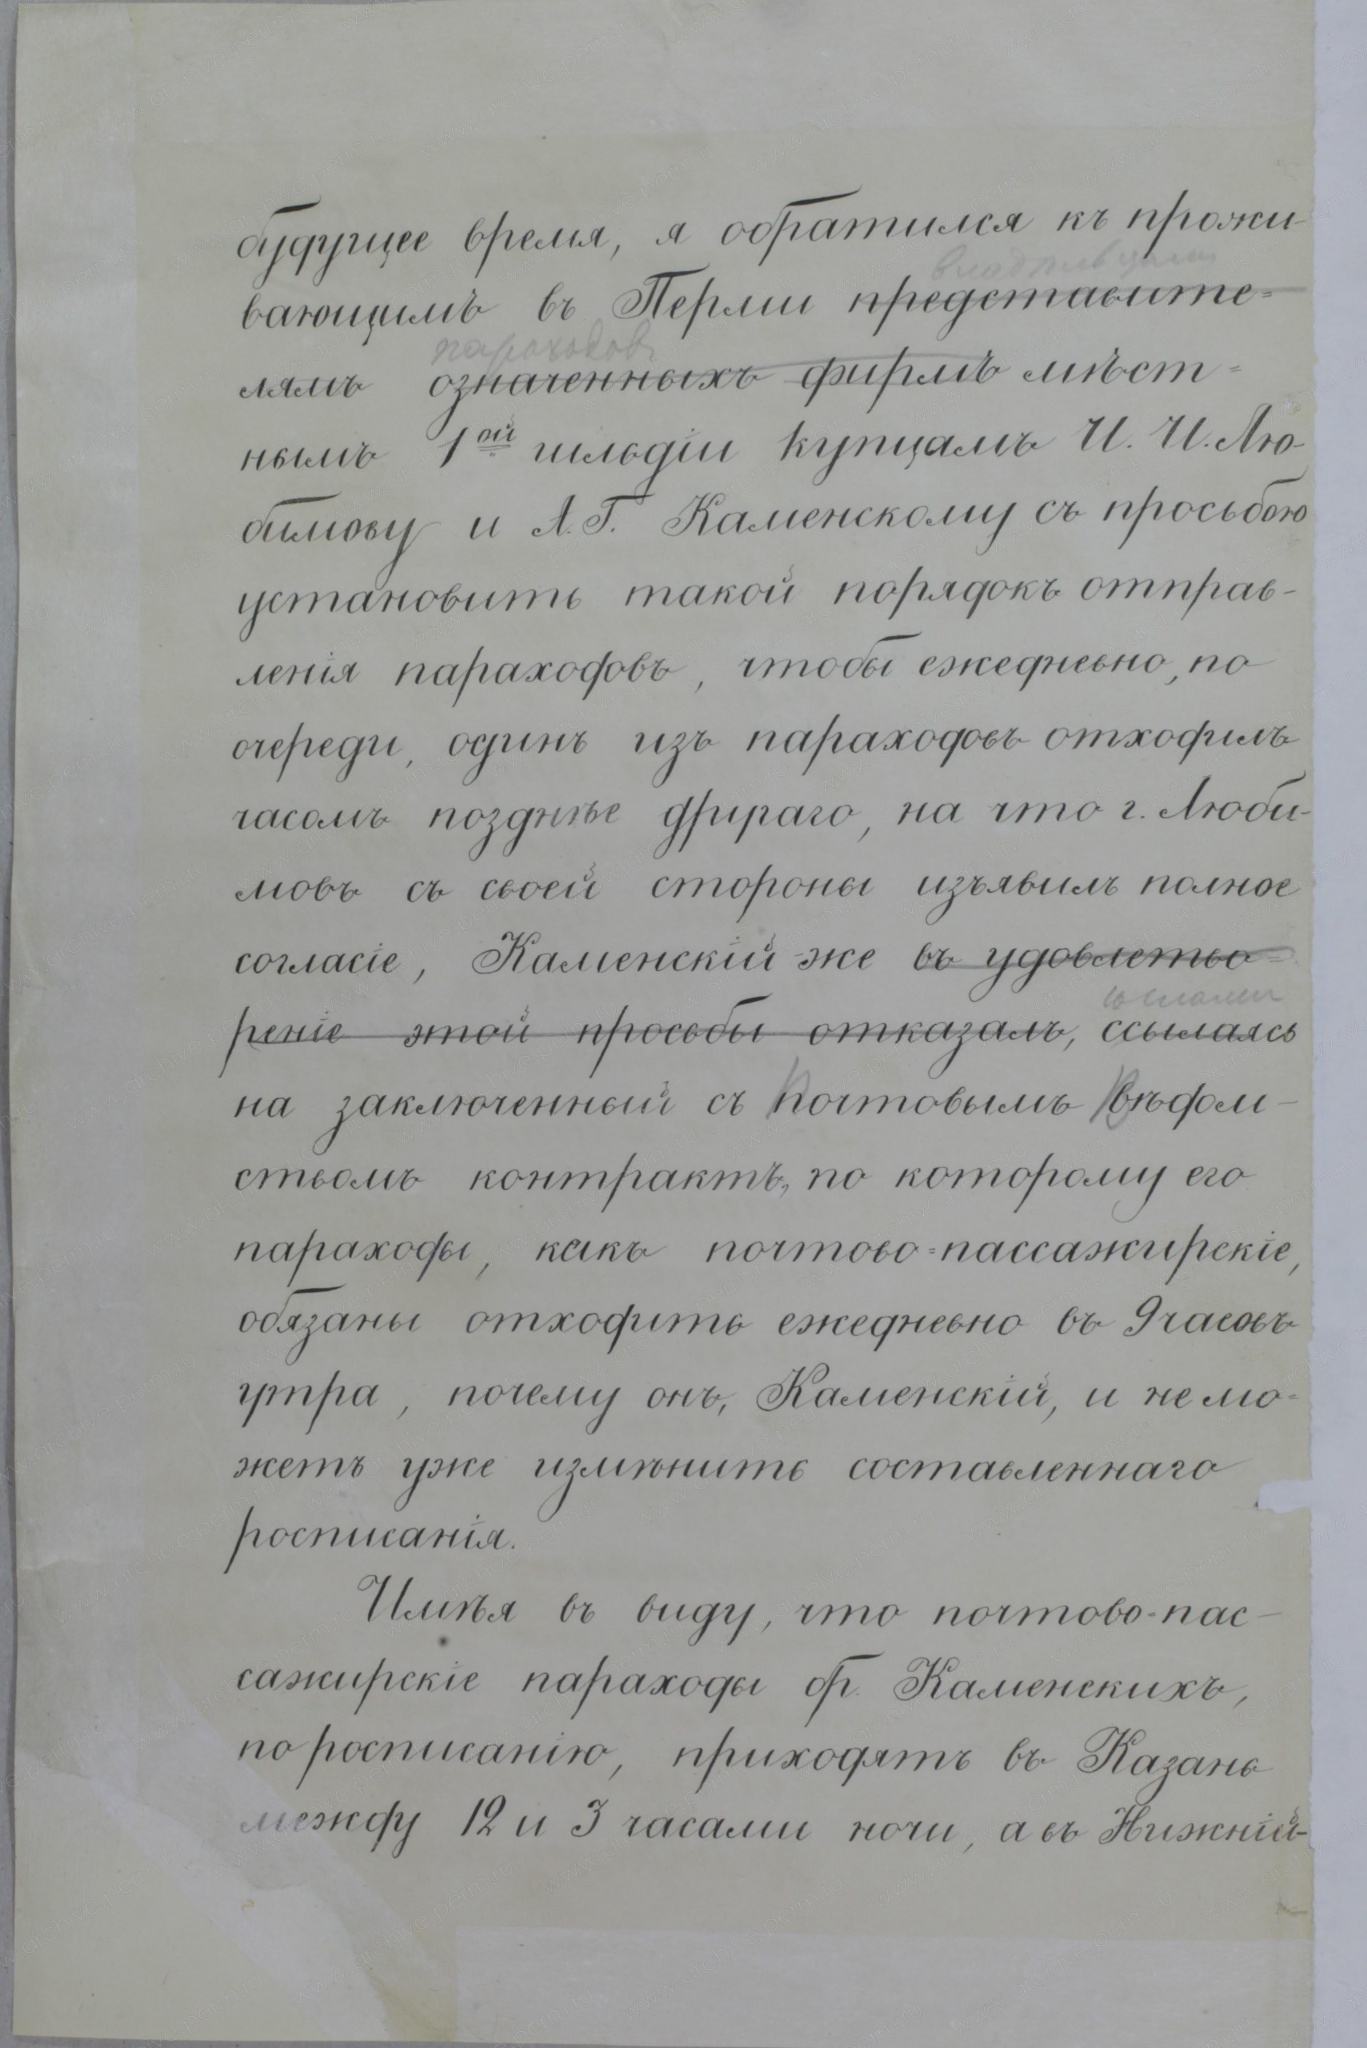 будущее время, я обратился къ прожи-
владѣльцамъ
вающимъ въ Перми представите-
пароходовъ
лямъ означенныхъ фирмъ мѣст-
нымъ 1ой гильдіи купцамъ И. И. Лю-
бимову и А. Г. Каменскому съ просьбою
установить такой порядокъ отправ-
ленія параходовъ, чтобы ежедневно, по
очереди, одинъ изъ параходовъ отходилъ
часомъ позднѣе другаго, на что г. Люби-
мовъ съ своей стороны изъявилъ полное
согласіе, Каменскій-же въ удовлетво-
реніе этой просьбы отказалъ, ссылаясь
на заключенный съ Почтовымъ Вѣдом-
ствомъ контрактъ, по которому его
параходы, какъ почтово-пассажирскіе,
обязаны отходить ежедневно въ 9 часовъ
утра, почему онъ, Каменскій, и не мо-
жетъ уже измѣнить составленнаго
росписанія.
Имѣя въ виду, что почтово-пас-
сажирскіе параходы бр. Каменскихъ,
по росписанію, приходятъ въ Казань
между 12 и 3 часами ночи, а въ Нижній-